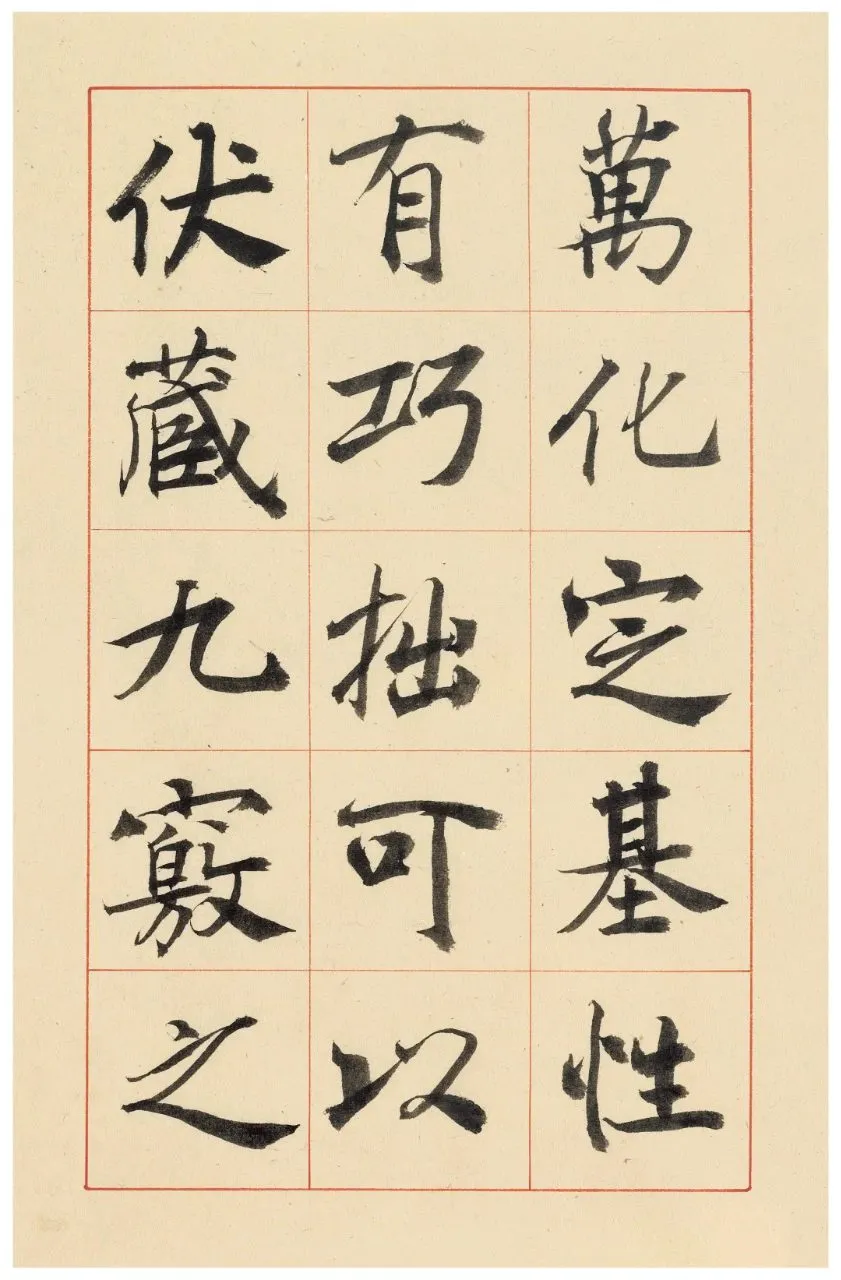 萬化定基性
有巧拙可以
伏藏九竅之